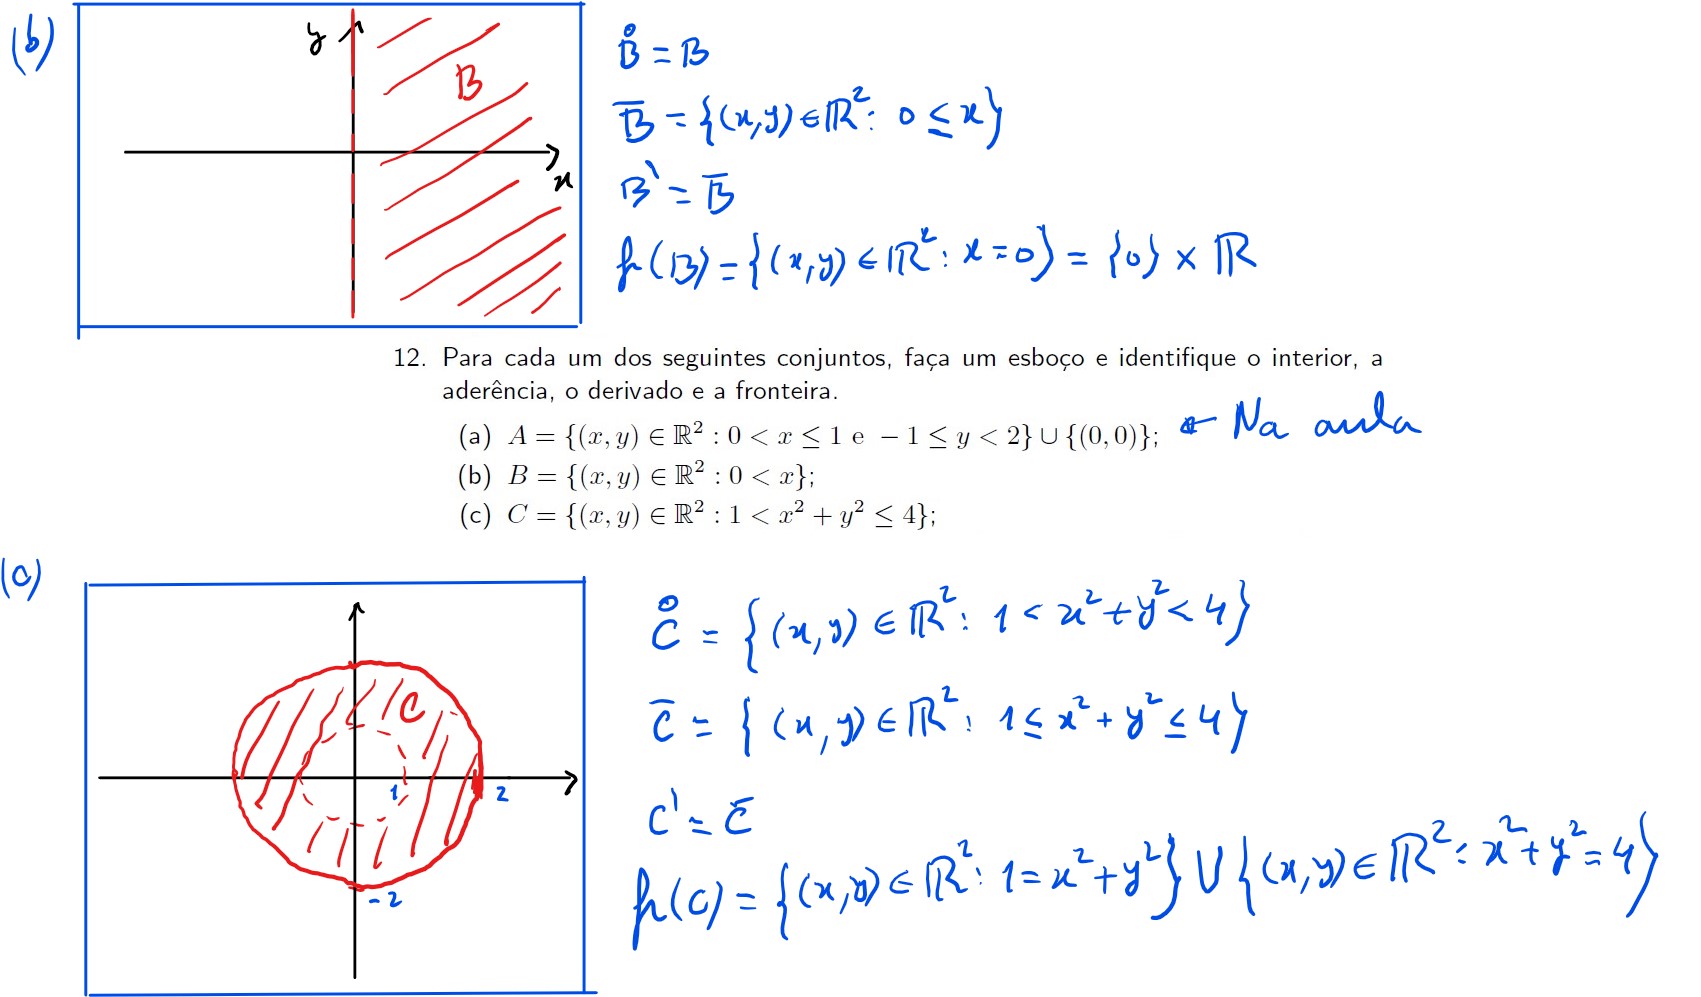 (b)
y
B
x
B̊ = B
B̅ = {(x,y) ∈ ℝ²: 0 ≤ x}
B' = B̅
fr(B) = {(x,y) ∈ ℝ²: x = 0} = {0} × ℝ
12. Para cada um dos seguintes conjuntos, faça um esboço e identifique o interior, a
aderência, o derivado e a fronteira.
(a) A = {(x, y) ∈ ℝ² : 0 < x ≤ 1 e − 1 ≤ y < 2} ∪ {(0, 0)}; ← Na aula
(b) B = {(x, y) ∈ ℝ² : 0 < x};
(c) C = {(x, y) ∈ ℝ² : 1 < x² + y² ≤ 4};
(c)
C
1
2
-2
C̊ = {(x,y) ∈ ℝ²: 1 < x² + y² < 4}
C̅ = {(x,y) ∈ ℝ²: 1 ≤ x² + y² ≤ 4}
C' = C̅
fr(C) = {(x,y) ∈ ℝ²: 1 = x² + y²} ∪ {(x,y) ∈ ℝ²: x² + y² = 4}